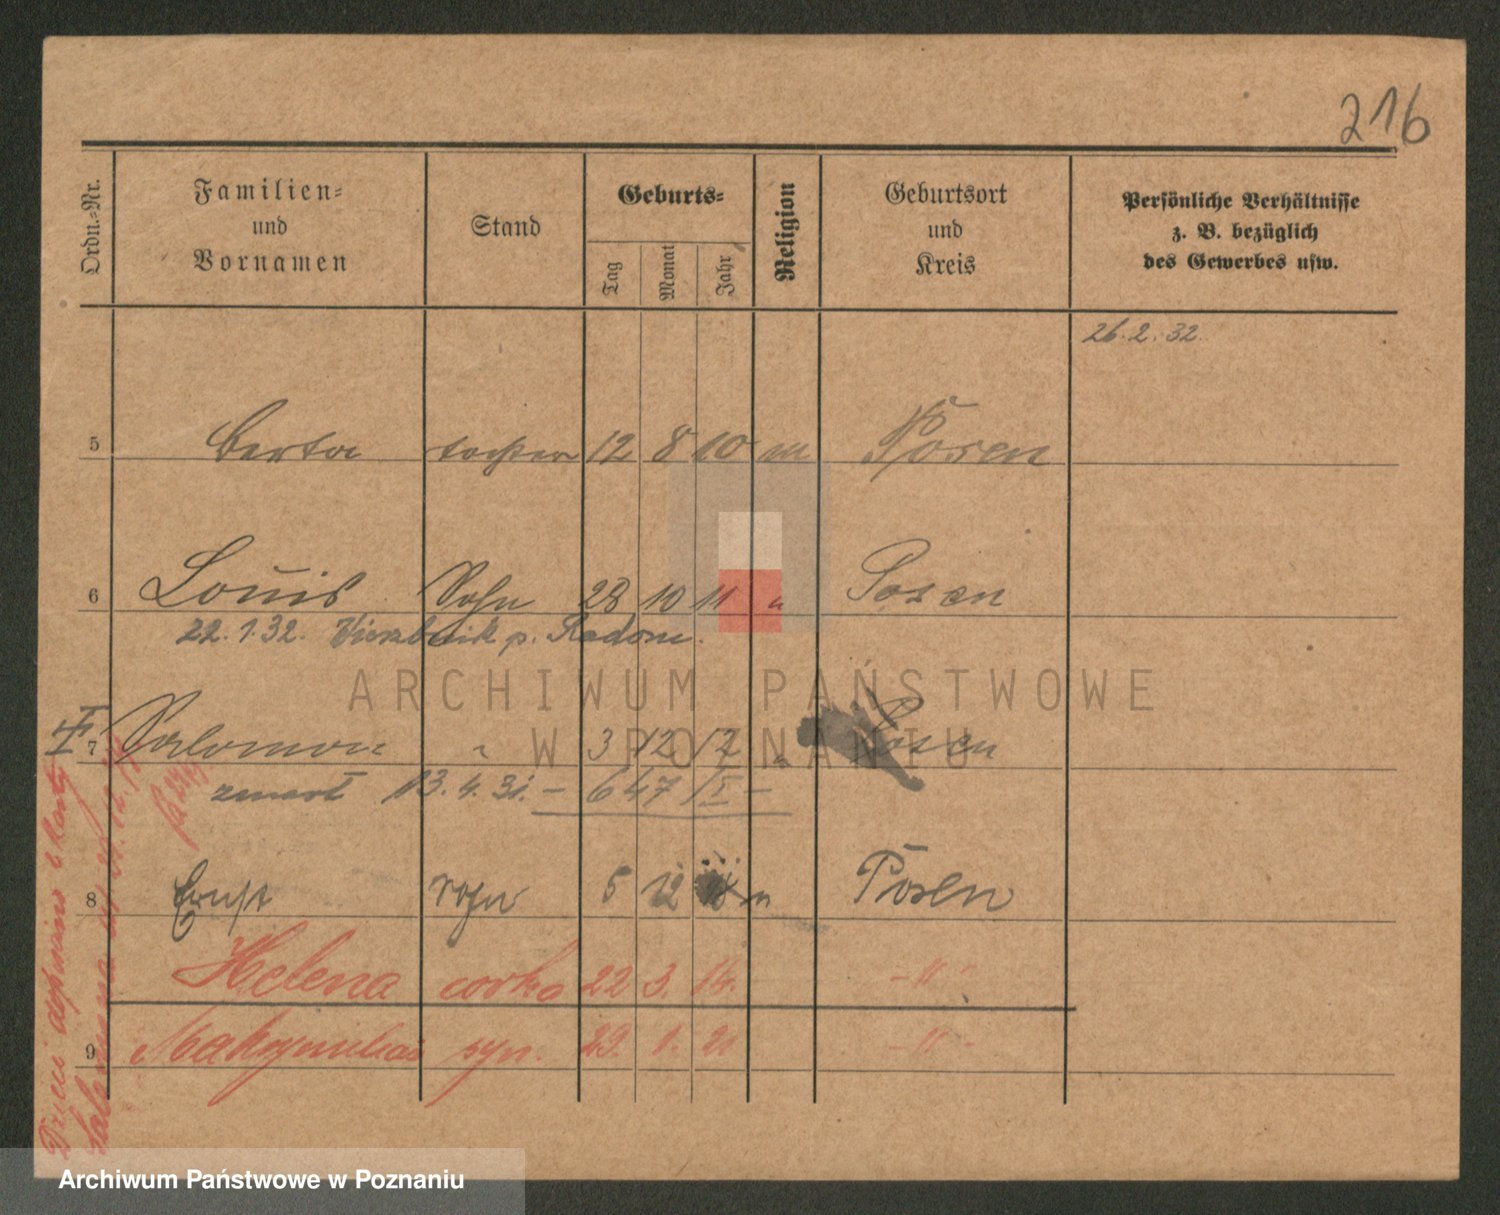 216
Ordn.-Nr.
Familien-
und
Vornamen
Stand
Geburts-
Tag
Monat
Jahr
Religion
Geburtsort
und
Kreis
Persönliche Verhältnisse
z. B. bezüglich
des Gewerbes usw.
26.2.32.
5 Berta 12 8 10 m Posen
6 Louis Sohn 28 10 11 " Posen
22.1.32. Wierzbnik p. Radom.
7 Salomon " 3 12 12 " Posen
zmarł 13.4.31. – 647/I –
8 Ernst Sohn 5 12 Posen
Helena córka 22 3. 14. – " –
9 Maksymilian syn. 29. 1. 21 – " –
ARCHIWUM PAŃSTWOWE
W POZNANIU
Archiwum Państwowe w Poznaniu